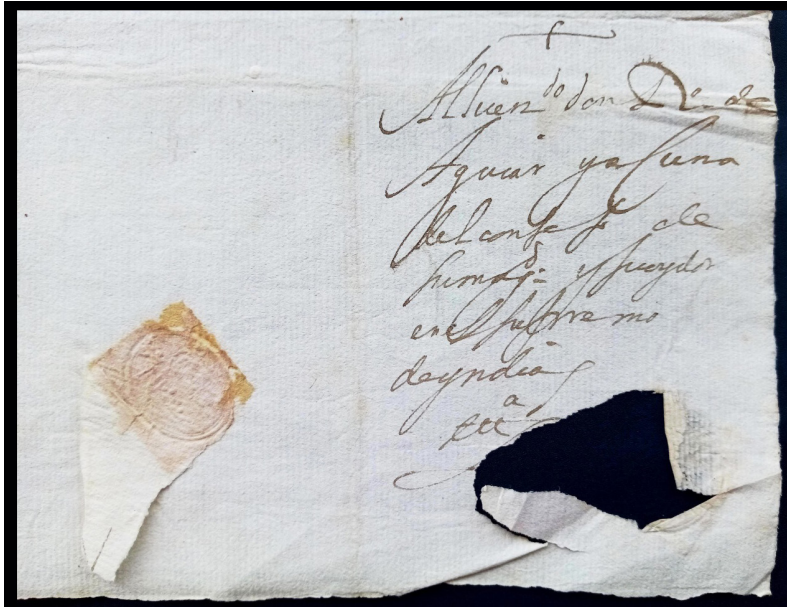 Al licen^do don R^o. de
Aguiar y aCuna
del consejo de
su mag^d. y su oydor
en el supremo
de yndias
ett^a